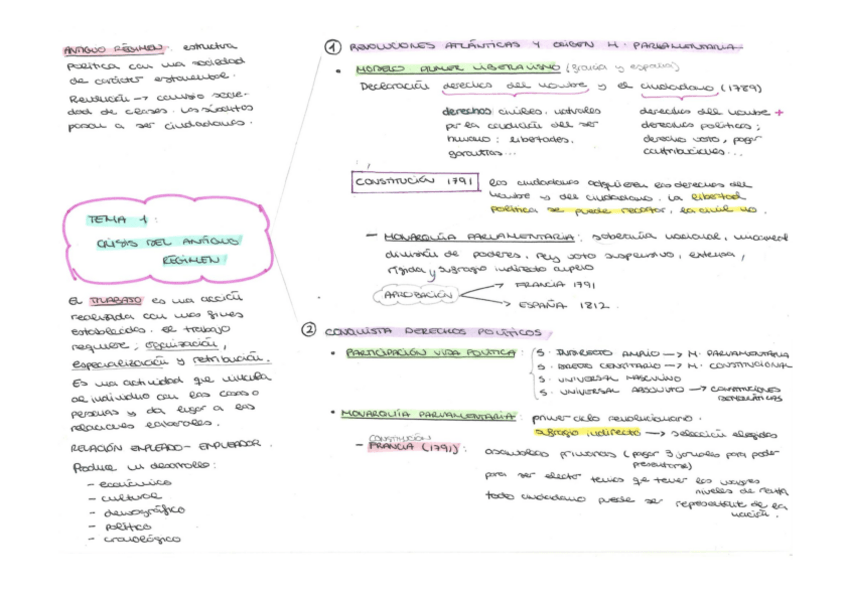 ANTIGUO RÉGIMEN: estructura
política con una sociedad
de carácter estamental.
Revolución → cambio socie-
dad de clases. Los súbditos
pasan a ser ciudadanos.
TEMA 1:
CRISIS DEL ANTIGUO
RÉGIMEN
El TRABAJO es una acción
realizada con unos fines
establecidos. El trabajo
requiere; organización,
especialización y retribución.
Es una actividad que vincula
al individuo con las cosas o
personas y da lugar a las
relaciones laborales.
RELACIÓN EMPLEADO - EMPLEADOR.
Produce un desarrollo:
- económico
- cultural
- demográfico
- político
- cronológico
1 REVOLUCIONES ATLÁNTICAS Y ORIGEN M. PARLAMENTARIA
• MODELO PRIMER LIBERALISMO (Francia y España)
Declaración derechos del hombre y el ciudadano (1789)
derechos civiles, naturales
por la condición del ser
humano: libertades,
garantías...
derechos del hombre +
derechos políticos;
derecho voto, pagar
contribuciones...
CONSTITUCIÓN 1791
los ciudadanos adquieren los derechos del
hombre y del ciudadano. La libertad
política se puede recortar, la civil no.
- MONARQUÍA PARLAMENTARIA: soberanía nacional, unicameral
división de poderes, rey voto suspensivo, extensa,
rígida y sufragio indirecto amplio
APROBACIÓN
→ FRANCIA 1791
→ ESPAÑA 1812.
2 CONQUISTA DERECHOS POLÍTICOS
• PARTICIPACIÓN VIDA POLÍTICA:
S. INDIRECTO AMPLIO → M. PARLAMENTARIA
S. DIRECTO CENSITARIO → M. CONSTITUCIONAL
S. UNIVERSAL MASCULINO
S. UNIVERSAL ABSOLUTO → CONSTITUCIONES
DEMOCRÁTICAS
• MONARQUÍA PARLAMENTARIA: primer ciclo revolucionario.
sufragio indirecto → selección elegidos
CONSTITUCIÓN
- FRANCIA (1791):
asambleas primarias (pagar 3 jornales para poder
presentarse)
para ser elector tenías que tener los mayores
niveles de renta
todo ciudadano puede ser representante de la
nación.